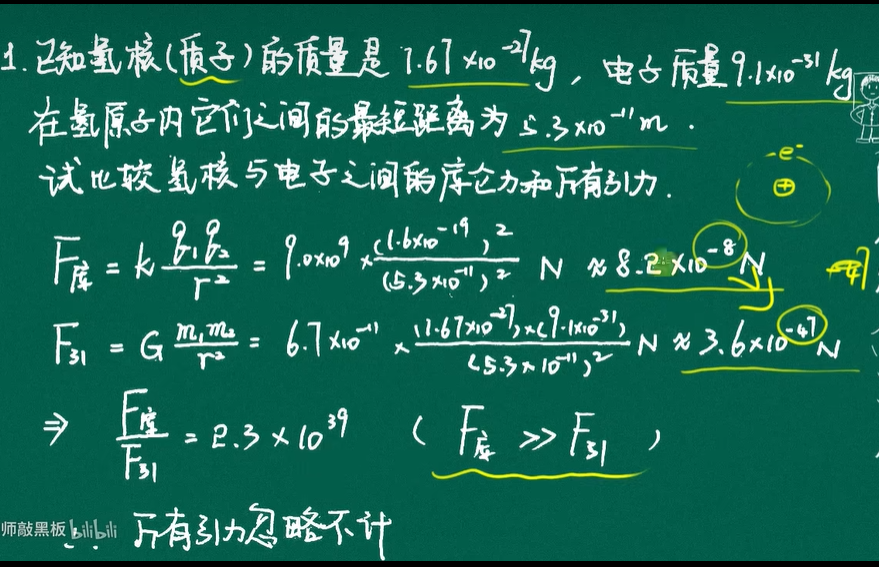 1. 已知氢核(质子)的质量是 1.67×10⁻²⁷kg，电子质量9.1×10⁻³¹kg
在氢原子内它们之间的最短距离为 5.3×10⁻¹¹m.
e⁻
⊕
试比较氢核与电子之间的库仑力和万有引力.
F库 = k q₁q₂/r² = 9.0×10⁹ × (1.6×10⁻¹⁹)²/(5.3×10⁻¹¹)² N ≈ 8.2×10⁻⁸N
F引 = G m₁m₂/r² = 6.7×10⁻¹¹ × (1.67×10⁻²⁷)×(9.1×10⁻³¹)/(5.3×10⁻¹¹)² N ≈ 3.6×10⁻⁴⁷N
⇒ F库/F引 = 2.3×10³⁹ (F库 ≫ F引)
万有引力忽略不计
师敲黑板 bilibili